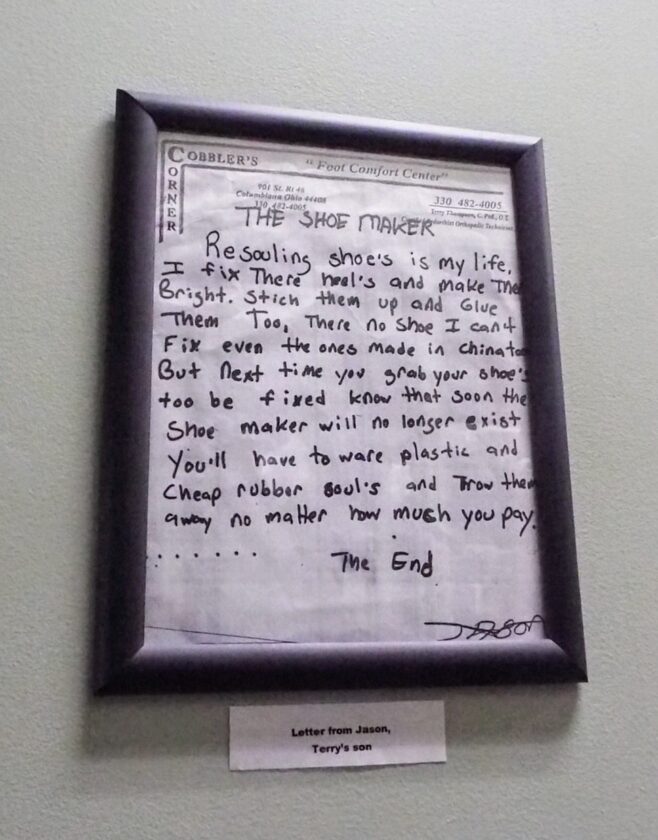 COBBLER'S
CORNER
"Foot Comfort Center"
901 St. Rt 46
Columbiana Ohio 44408
330 482-4005
330 482-4005
Terry Thompson, C. Ped., O.T.
Orthopedic Technician
THE SHOE MAKER
Resouling shoe's is my life,
I fix There heel's and make The
Bright. Stich them up and Glue
Them Too, There no shoe I can't
Fix even the ones made in china to
But Next time you grab your shoe's
too be fixed know that soon the
Shoe maker will no longer exist
You'll have to ware plastic and
Cheap rubber soul's and Trow them
away no matter how much you pay.
.......
The End
Jason
Letter from Jason,
Terry's son